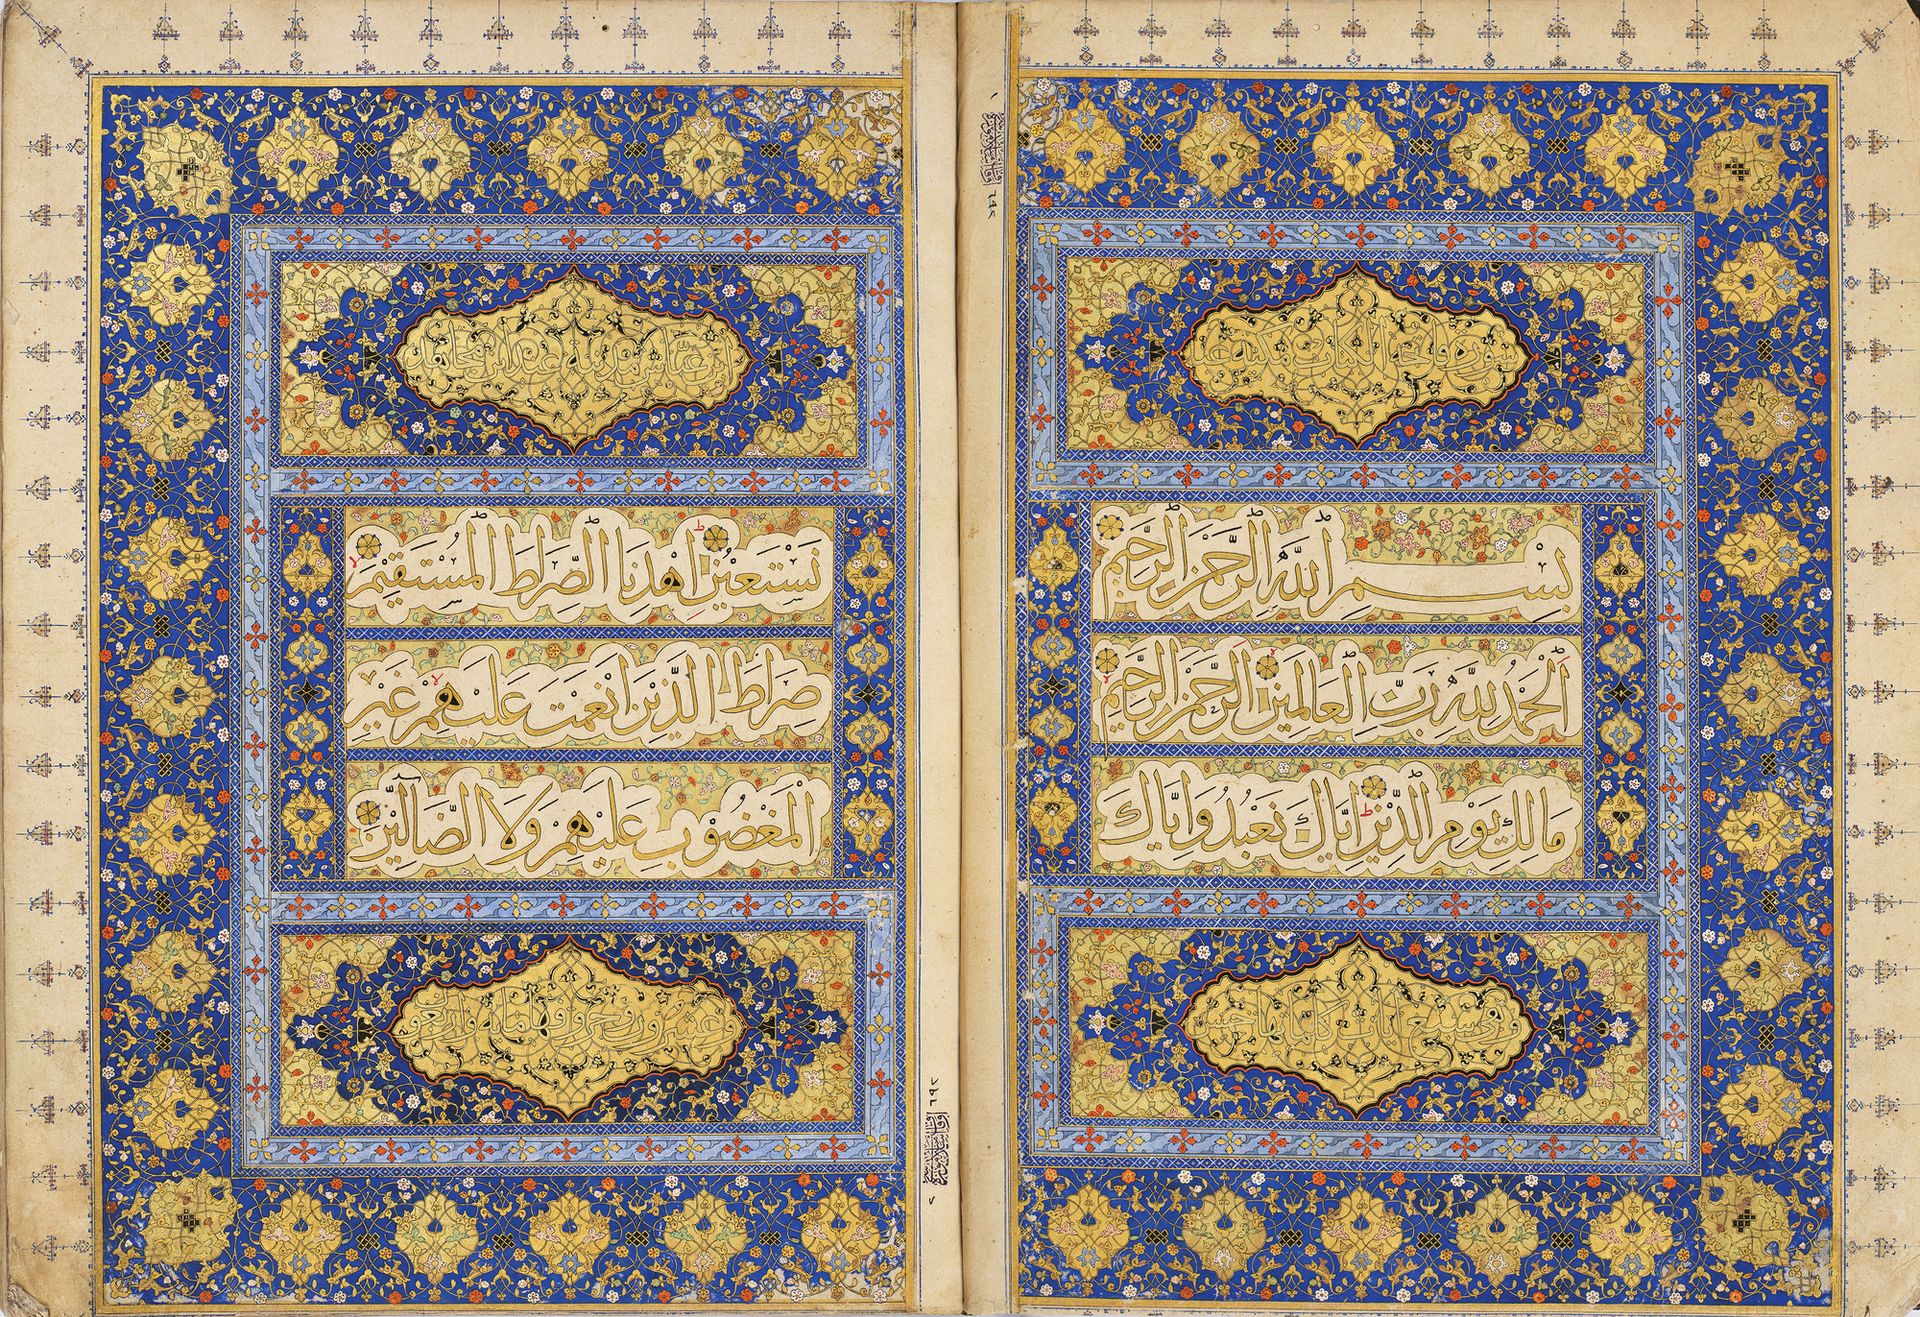 سورة فاتحة الكتاب مكية
بِسْمِ اللَّهِ الرَّحْمَٰنِ الرَّحِيمِ
اَلْحَمْدُ لِلَّهِ رَبِّ الْعَالَمِينَ الرَّحْمَٰنِ الرَّحِيمِ
مَالِكِ يَوْمِ الدِّينِ اِيَّاكَ نَعْبُدُ وَاِيَّاكَ
وهي سبع آيات كلماتها خمس
نَسْتَعِينُ اِهْدِنَا الصِّرَاطَ الْمُسْتَقِيمَ
صِرَاطَ الَّذِينَ اَنْعَمْتَ عَلَيْهِمْ غَيْرِ
الْمَغْضُوبِ عَلَيْهِمْ وَلَا الضَّالِّينَ
وعشرون وحروفها مائة